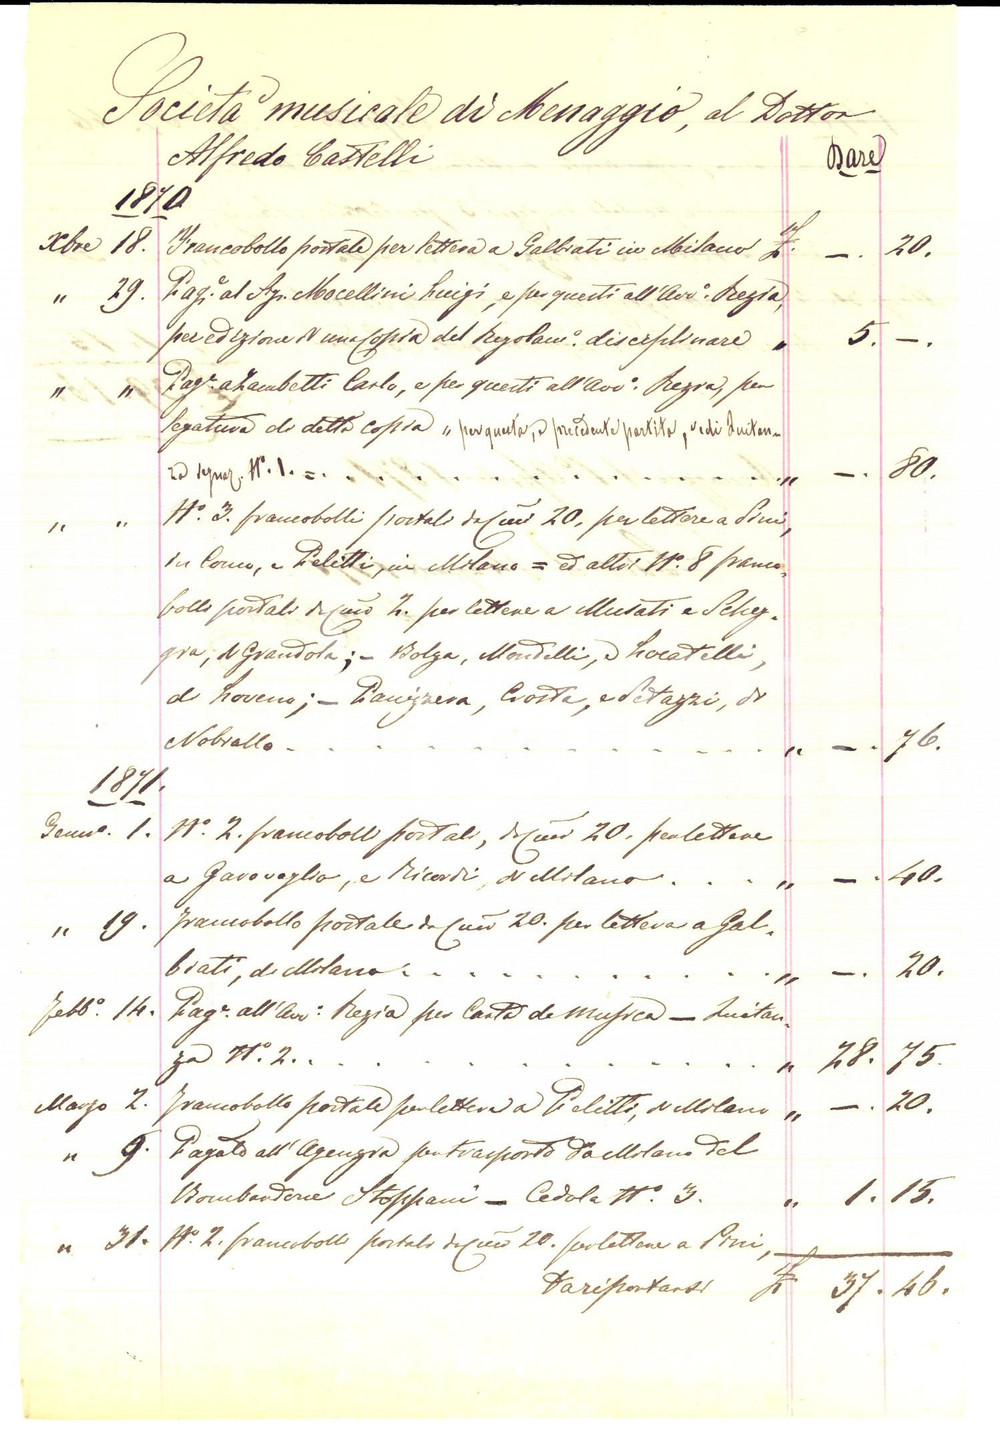 Società musicale di Menaggio, al Dottor
Alfredo Castelli
Dare
1870
Xbre 18. Francobollo postale per lettera a Galbiati in Milano £. —. 20.
" 29. Pag.º al Sig. Mocellini Luigi, e per questi all'Avv.º Rezia,
per edizione di una Copia del Regolam.º disciplinare " 5. —.
" " Pag.º a Zambetti Carlo, e per questi all'Avv.º Rezia, per
legatura di detta copia " per questa, e precedente partita, vedi Quitan-
za segnaz. N.º 1. = " —. 80.
" " N.º 3. francobolli postali da Cmi 20. per lettere a Pini,
in Como, e Pelitti, in Milano = ed altri N.º 8 franco-
bolli postali da Cmi 2. per lettere a Musati e Scheg-
gia, di Grandola; — Bolza, Mondelli, e Locatelli,
di Loveno; — Panizzera, Crosta, e Petazzi, di
Nobiallo " —. 76.
1871.
Genn.º 1. N.º 2. francobolli postali, da Cmi 20. per lettere
a Garovaglio, e Ricordi, di Milano " —. 40.
" 19. Francobollo postale da Cmi 20. per lettera a Gal-
biati, di Milano " —. 20.
Febb.º 14. Pag.º all'Avv.º Rezia per Carta da Musica — Quitan-
za N.º 2. " 28. 75.
Marzo 2. Francobollo postale per lettera a Pelitti, di Milano " —. 20.
" 9. Pagato all'Agenzia per trasporto da Milano del
Bombardone Stoppani — Cedola N.º 3. " 1. 15.
" 31. N.º 2. francobolli postali da Cmi 20. per lettere a Pini,
Da riportarsi £ 37. 46.